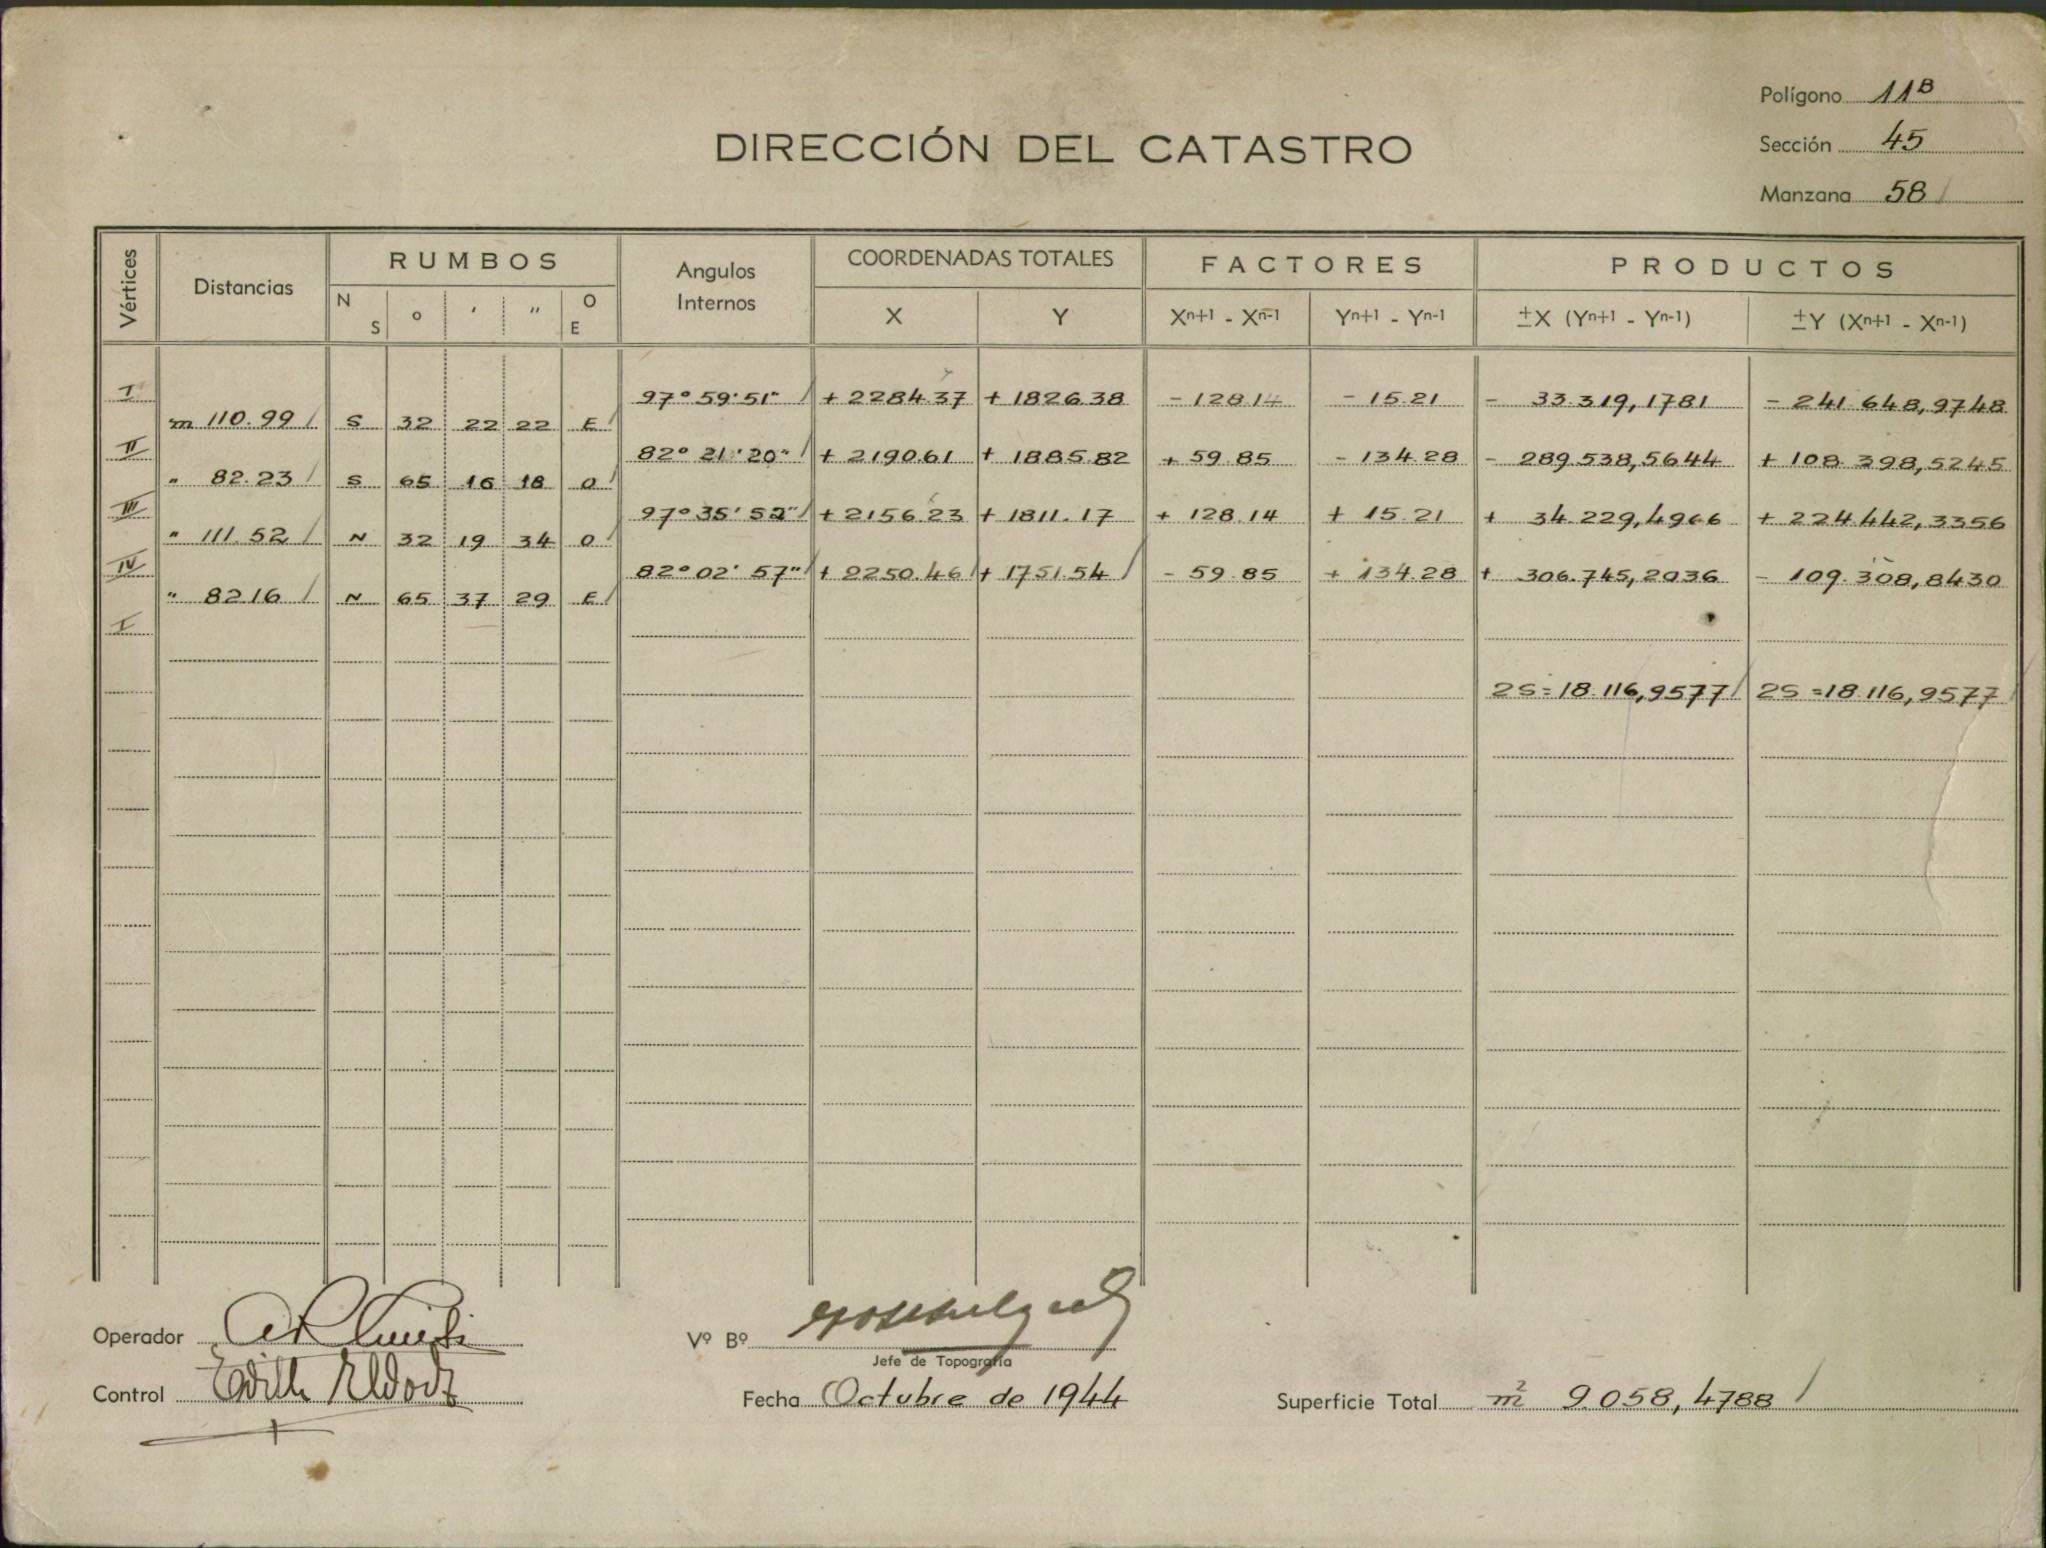 Polígono 11B
DIRECCIÓN DEL CATASTRO
Sección 45
Manzana 58
Vértices Distancias RUMBOS Angulos Internos COORDENADAS TOTALES FACTORES PRODUCTOS
N S ° ' " O E X Y Xn+1 - Xn-1 Yn+1 - Yn-1 ±X (Yn+1 - Yn-1) ±Y (Xn+1 - Xn-1)
I 97° 59' 51" + 2284.37 + 1826.38 - 128.14 - 15.21 - 33.319,1781 - 241.648,9748
m 110.99 S 32 22 22 E
II 82° 21' 20" + 2190.61 + 1885.82 + 59.85 - 134.28 - 289.538,5644 + 108.398,5245
" 82.23 S 65 16 18 O
III 97° 35' 52" + 2156.23 + 1811.17 + 128.14 + 15.21 + 34.229,4966 + 224.442,3356
" 111.52 N 32 19 34 O
IV 82° 02' 57" + 2250.46 + 1751.54 - 59.85 + 134.28 + 306.745,2036 - 109.308,8430
" 82.16 N 65 37 29 E
I
2S=18.116,9577 2S=18.116,9577
Operador Vº Bº
Jefe de Topografía
Control Edith Fecha Octubre de 1944 Superficie Total m2 9.058,4788